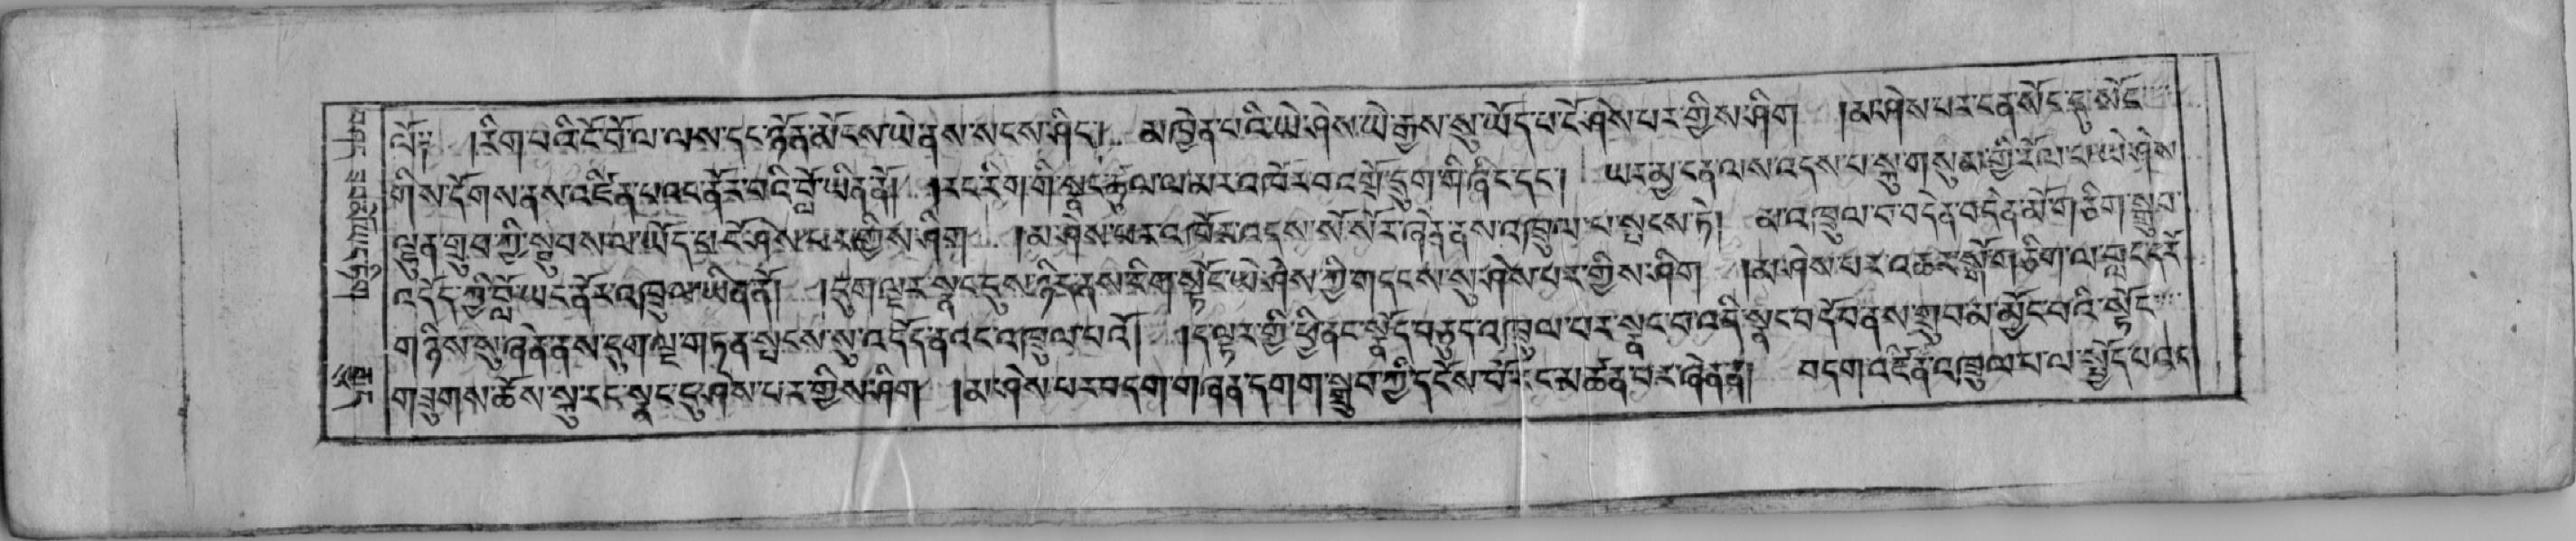 ལོ༔ །རིག་པའི་ངོ་བོ་ལ་ལས་དང་ཉོན་མོངས་ཡེ་ནས་སངས་ཤིང་། མ་ཁྱེན་པའི་ཡེ་ཤེས་ཡེ་རྒྱས་སུ་ཡོད་པ་ངོ་ཤེས་པར་གྱིས་ཤིག །མ་ཤེས་པར་ངན་སོང་དུ་སོང་
གིས་དོགས་ནས་འཛིན་པ་འང་ནོར་བའི་བློ་ཡིན་ནོ། །རང་རིག་གི་སྣང་ཚུལ་ལ་མར་འཁོར་བ་འགྲོ་དྲུག་གི་ཞིང་དང་། ཡར་མྱ་ངན་ལས་འདས་པ་སྐུ་གསུམ་གྱི་རོལ་པ་ཡེ་ཤེས་
ལྷུན་གྲུབ་ཀྱི་སྟབས་ལ་ཡོད་པ་ངོ་ཤེས་པར་གྱིས་ཤིག །མ་ཤེས་པར་འཁོར་འདས་སོ་སོར་ཞེན་ནས་འཁྲུལ་པ་སྤངས་ཏེ། མ་འཁྲུལ་བ་བདེན་བདེན་མོ་གཅིག་སྒྲུབ་
འདོད་ཀྱི་བློ་ཡང་ནོར་འཁྲུལ་ཡིན་ནོ། །དུག་ལྔར་སྣང་དུས་ཉིད་ནས་རིག་སྟོང་ཡེ་ཤེས་ཀྱི་གདངས་སུ་ཤེས་པར་གྱིས་ཤིག །མ་ཤེས་པར་འཆར་སྒོ་གཅིག་ལ་བླང་དོར་
གཉིས་སུ་ཞེན་ནས་དུག་ལྔ་གཏན་སྤངས་སུ་འདོད་ན་འང་འཁྲུལ་པའོ། །ད་ལྟར་གྱི་ཕྱི་ནང་སྣོད་བཅུད་འཁྲུལ་པར་སྣང་བ་འདི་སྣང་བ་དོན་ནས་གྲུབ་མ་མྱོང་བའི་སྟོང་
གཟུགས་ཆོས་སྐུ་རང་སྣང་དུ་ཤེས་པར་གྱིས་ཤིག །མ་ཤེས་པར་བདག་གཞན་དགག་སྒྲུབ་ཀྱི་དངོས་པོ་རང་མཚན་པར་ཞེན་ན། བདག་འཛིན་འཁྲུལ་པ་ལ་སྤྱོད་པ་འང་